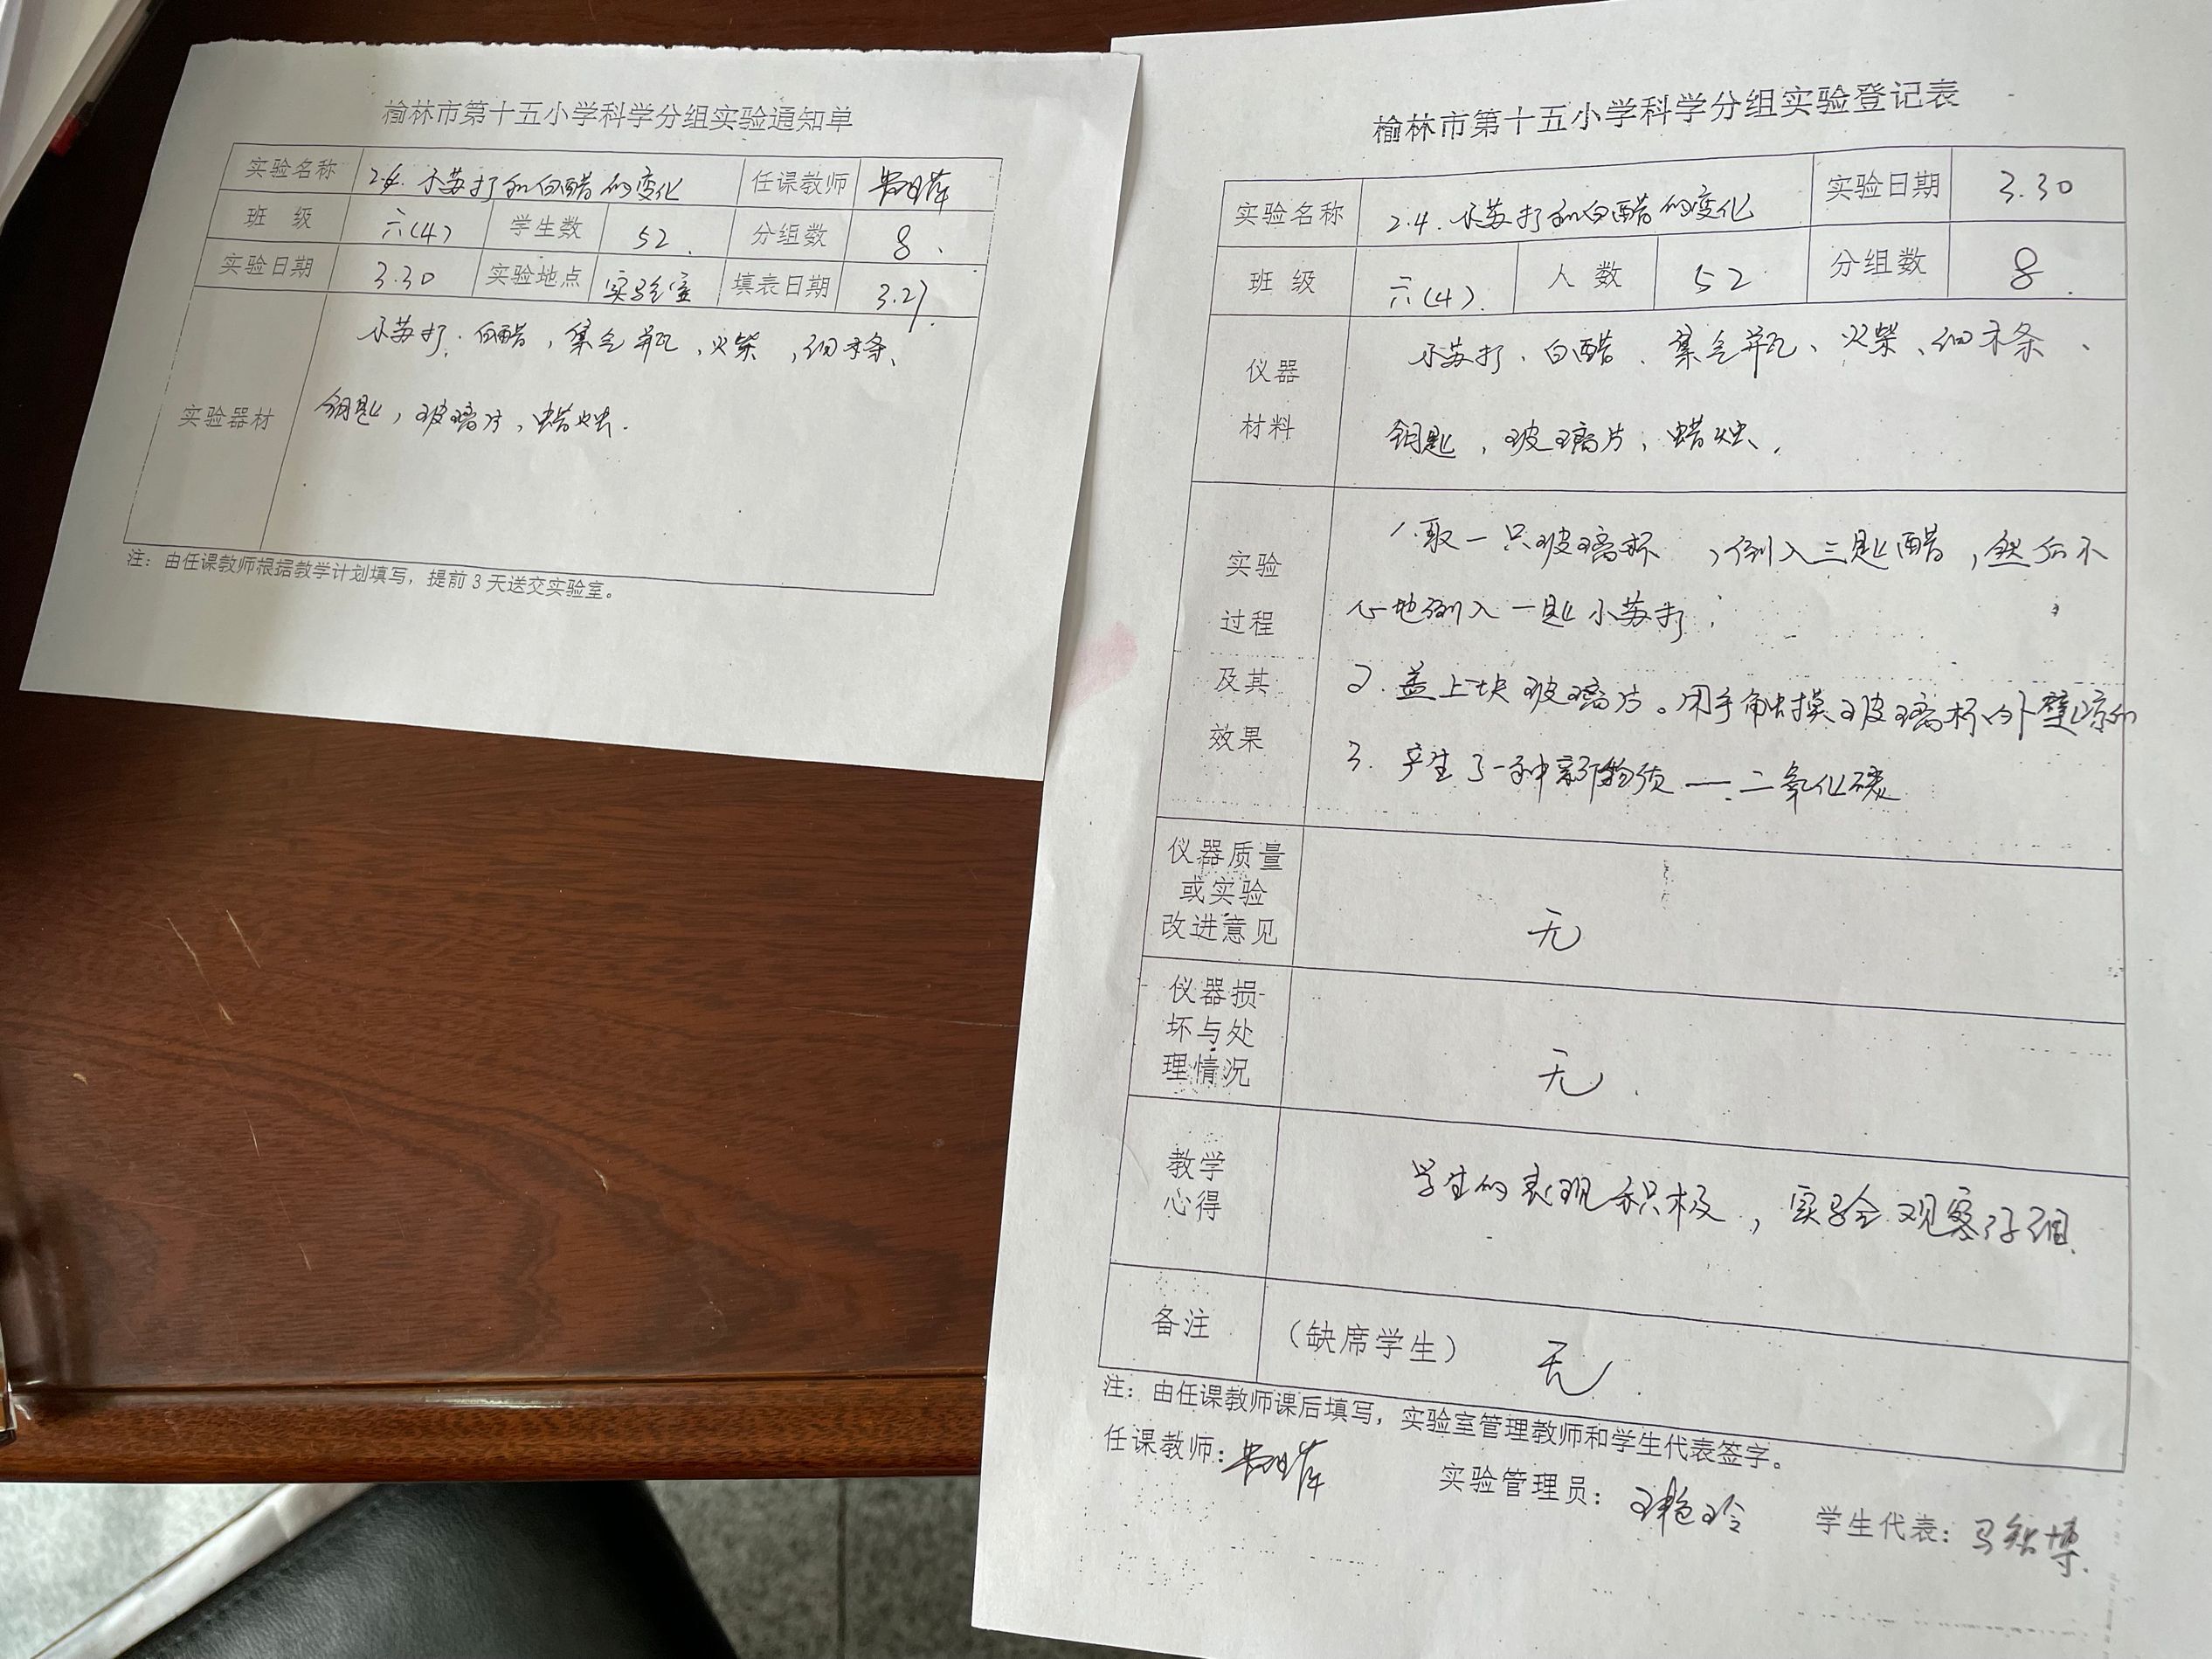 榆林市第十五小学科学分组实验通知单
实验名称 2.4. 小苏打和白醋的变化 任课教师
班 级 六(4) 学生数 52. 分组数 8.
实验日期 3.30 实验地点 实验室 填表日期 3.27.
实验器材 小苏打、白醋,集气瓶、火柴,细木条、
钥匙,玻璃片,蜡烛.
注:由任课教师根据教学计划填写,提前3天送交实验室。
榆林市第十五小学科学分组实验登记表
实验名称 2.4.小苏打和白醋的变化 实验日期 3.30
班 级 六(4). 人 数 52 分组数 8.
仪器 小苏打、白醋、集气瓶、火柴、细木条、
材料 钥匙,玻璃片,蜡烛.
实验 1.取一只玻璃杯,倒入三匙醋,然后小
过程 心地倒入一匙小苏打;
及其 2.盖上块玻璃片。用手触摸玻璃杯外壁凉的
效果 3.产生了一种新物质——二氧化碳
仪器质量
或实验
改进意见 无
仪器损
坏与处
理情况 无.
教学
心得 学生的表现积极,实验观察仔细.
备注 (缺席学生) 无.
注:由任课教师课后填写,实验室管理教师和学生代表签字。
任课教师: 实验管理员:王艳玲 学生代表:马